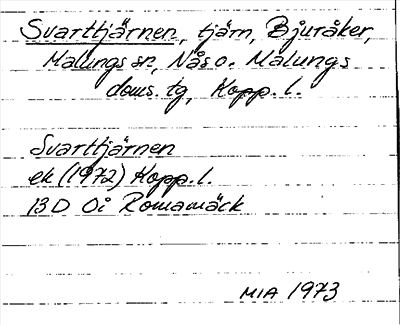 Svarttjärnen, tjärn, Bjuråker,
Malungs sn, Nås o. Malungs
doms. tg, Kopp. l.
Svarttjärnen
ek (1972) Kopp. l.
13D 0i Romamäck
MIA 1973